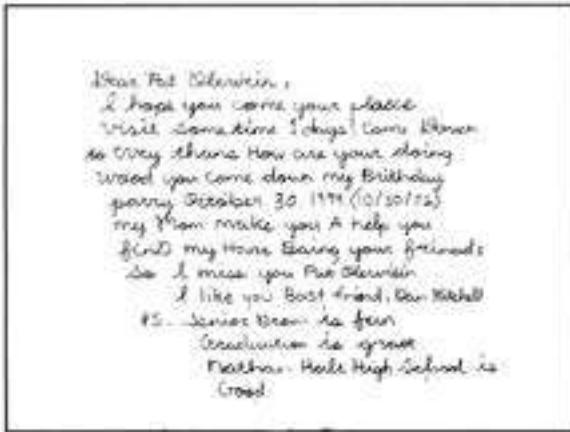 Dear Pat
I hope you come your place
visit sometime 5 days! Come Down
to Evry thans How are your doing
Wood you come down my Brithday
parry October 30 1994 (10/30/76)
my Mom make you A help you
find my Hous Baing your frineds
So I miss you Pat
I like you Bast friend, Dan Mitchell
P.S. Senior Prom is fun
Graduation is grate
Nathan Hale High School is
Good